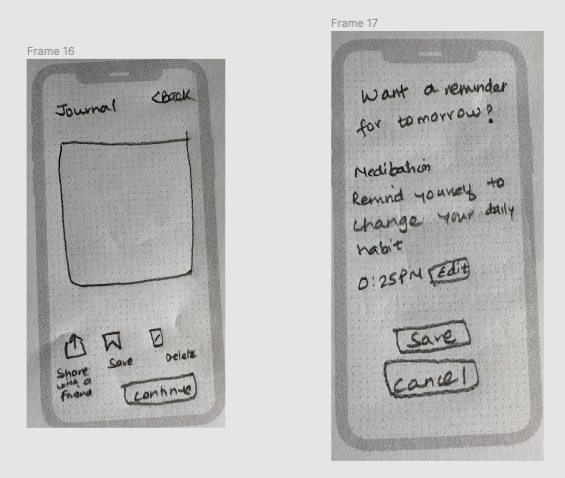 Frame 16
Journal
<Back
Share
with a
friend
Save
Delete
Continue
Frame 17
Want a reminder
for tomorrow?
Meditation
Remind yourself to
change your daily
habit
0:25PM Edit
Save
Cancel